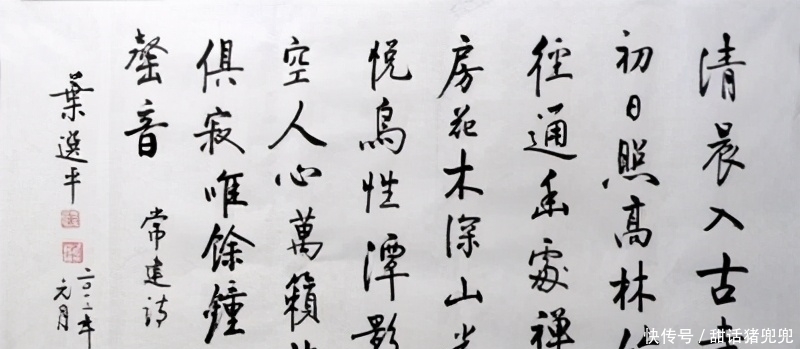 清晨入古
初日照高林
徑通幽處禪
房花木深山光
悅鳥性潭影
空人心萬籟
俱寂唯餘鍾
罄音
常建詩
葉選平
年
元月
快传号 / 甜话猪兜兜